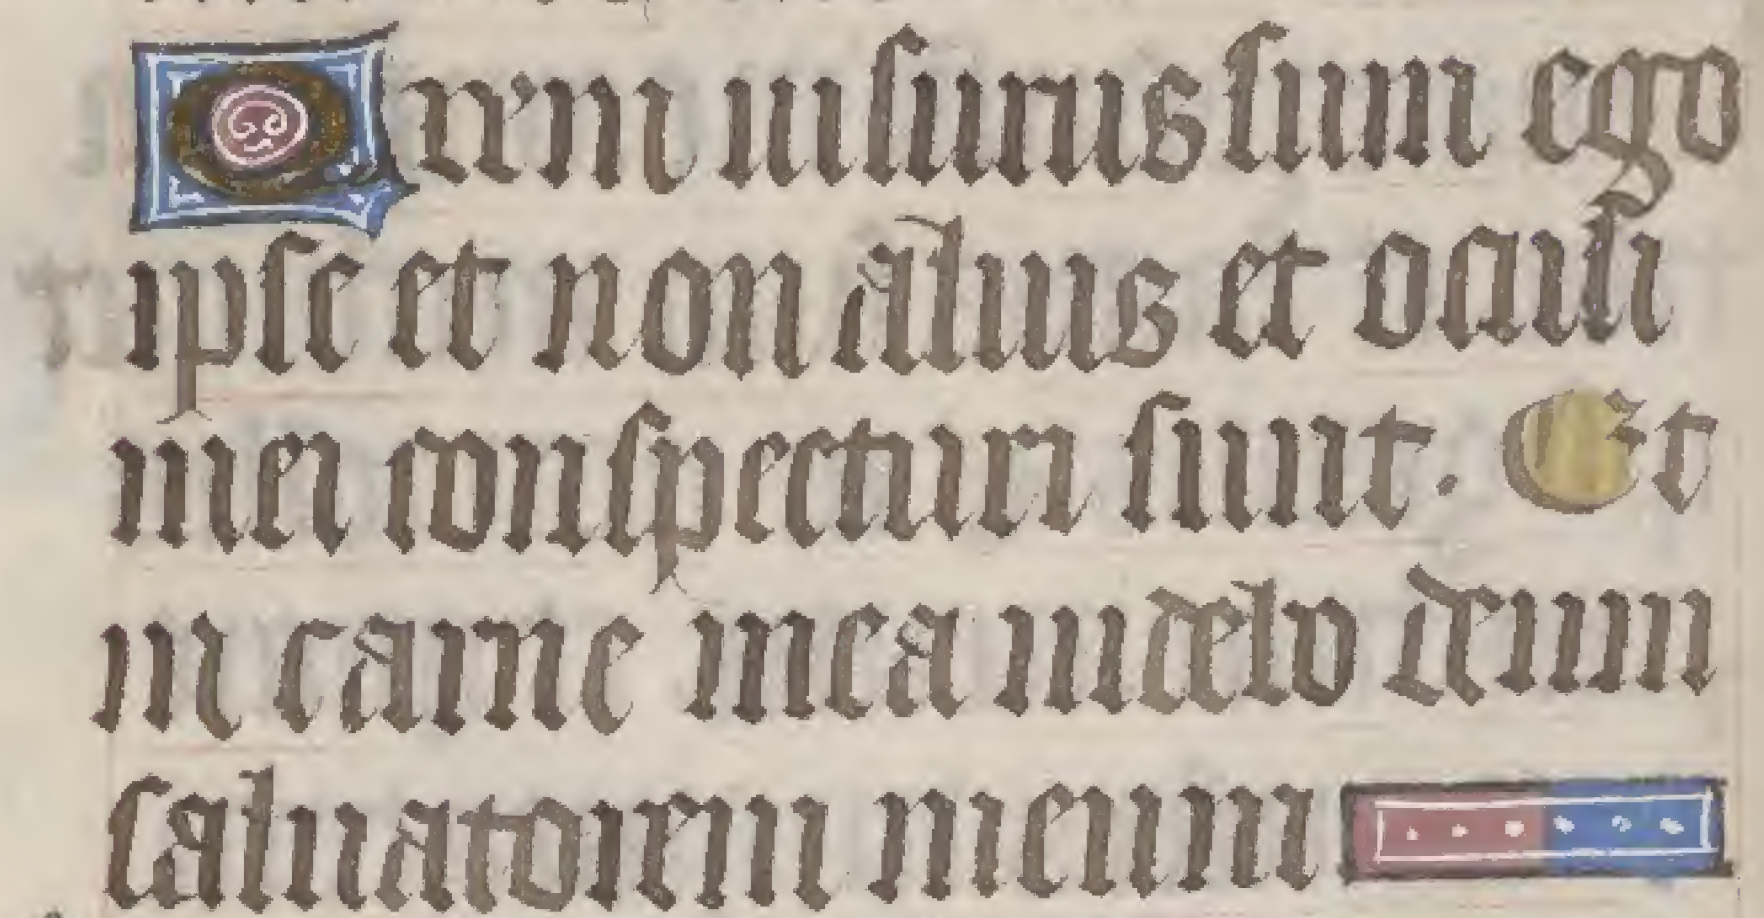 Quem uisurus sum ego
ipse et non alius et oculi
mei conspecturi sunt. Et
in carne mea uidebo deum
saluatorem meum